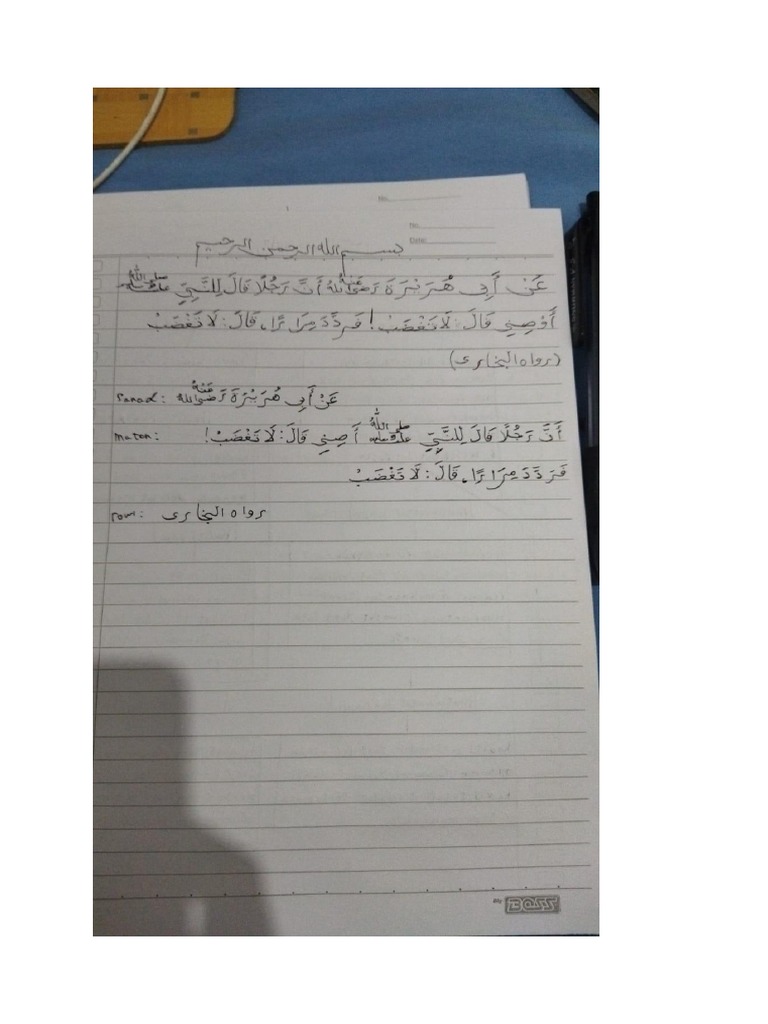 No.
No.
Date:
بسم الله الرحمن الرحيم
عَنْ أَبِى هُرَيْرَةَ رَضِيَ اللهُ عَنْهُ أَنَّ رَجُلًا قَالَ لِلنَّبِيِّ صلى الله عليه وسلم
أَوْصِنِي قَالَ: لَا تَغْضَبْ! فَرَدَّدَ مِرَارًا، قَالَ: لَا تَغْضَبْ
(رواه البخارى)
sanad: عَنْ أَبِى هُرَيْرَةَ رَضِيَ اللهُ عَنْهُ
maten: أَنَّ رَجُلًا قَالَ لِلنَّبِيِّ صلى الله عليه وسلم أَصِنِي قَالَ: لَا تَغْضَبْ!
فَرَدَّدَ مِرَارًا، قَالَ: لَا تَغْضَبْ
rowi: رواه البخارى
My BOSS